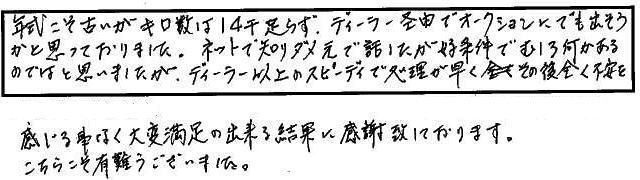 年式こそ古いがキロ数は14千足らず、ディーラー経由でオークションにでも出そう
かと思っておりました。ネットで知りダメ元で話したが好条件でむしろ何かある
のではと思いましたが、ディーラー以上のスピーディで処理が早くその後全く不安を
感じる事なく大変満足の出来る結果に感謝致しております。
こちらこそ有難うございました。